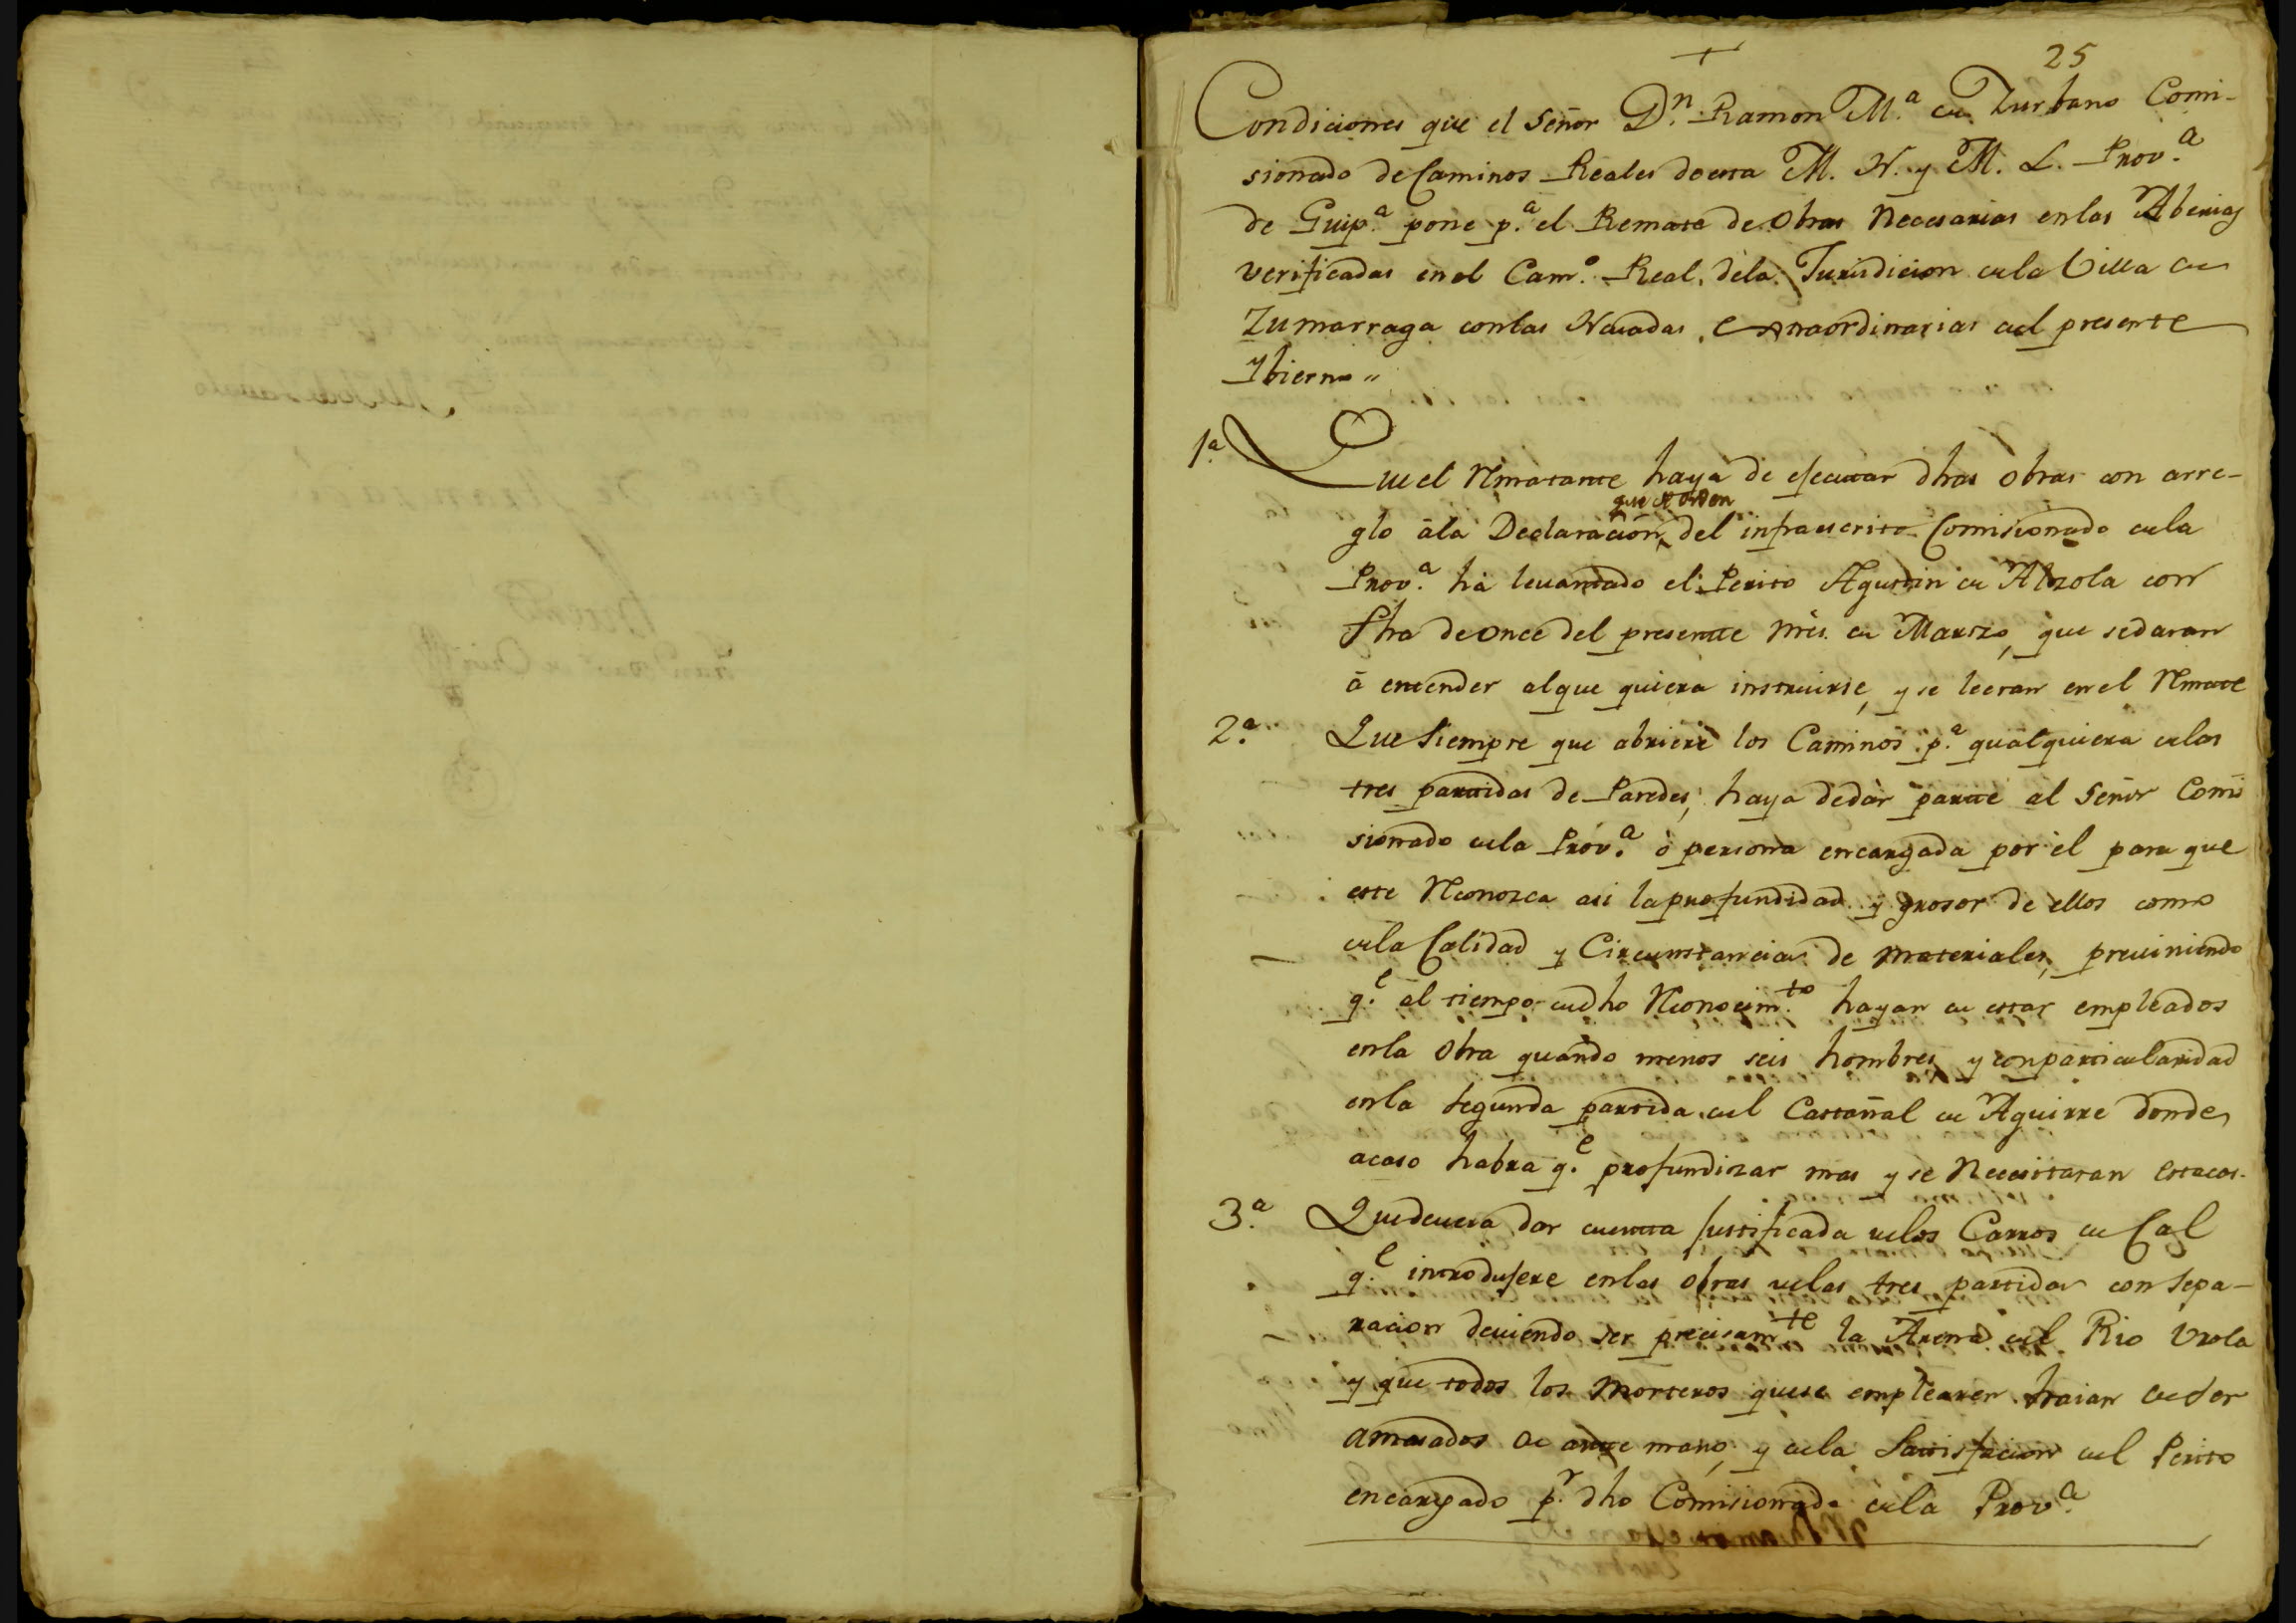 +
25
Condiciones que el Señor D.n Ramon M.a de Zurbano Comi-
sionado de Caminos Reales de esta M. N. y M. L. Prov.a
de Guip.a pone p.a el Remate de obras Necesarias en las Aberias
verificadas en el Cam.o Real de la Jurisdicion de la Villa de
Zumarraga con las Nevadas extraordinarias del presente
Ybierno"
1a Que el Rematante haya de ejecutar dhas obras con arre-
que de orden
glo â la Declaración del infraescrito Comisionado de la
Prov.a hà levantado el Perito Agustin de Alzola con
fha de once del presente Mes de Marzo, que se daran
â entender al que quiera instruirse, y se leeran en el Remate
2.a Que Siempre que abriere los Caminos p.a qualquiera de las
tres partidas de Paredes, haya de dàr parte al Señor Comi
sionado de la Prov.a ò persona encargada por èl para que
este Reconozca asi la profundidad y grosor de ellos como
de la Calidad y Circunstancias de materiales, previniendo
q.e al tiempo de dho Reconocim.to hayan de estar empleados
en la Obra quando menos seis hombres, y con particularidad
en la segunda partida del Castañal de Aguirre donde
acaso habra q.e profundizar mas y se Necesitaran estacas.
3.a Que devera dar cuenta justificada de los Carros de Cal
q.e introdujere en las obras de las tres partidas con sepa-
racion deviendo ser precisam.te la Arena del Rio Urola
y que todos los Morteros que se emplearen haian de ser
amasados de ante mano, y de la Satisfacion del Perito
encargado p.r dho Comisionado de la Prov.a